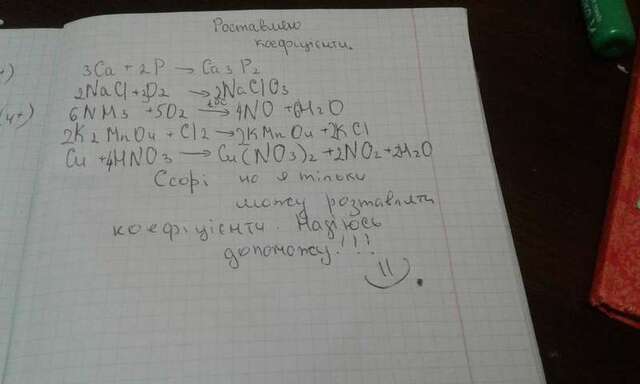 Роставлено
коефіцієнти.
3Ca + 2P → Ca3P2
2NaCl + 3O2 → 2NaClO3
6NH3 + 5O2 → 4NO + 6H2O
2K2MnO4 + Cl2 → 2KMnO4 + 2KCl
Cu + 4HNO3 → Cu(NO3)2 + 2NO2 + 2H2O
Ссорі но я тільки
можу розтавляти
коефіцієнти. Надіюсь
допоможу!!!